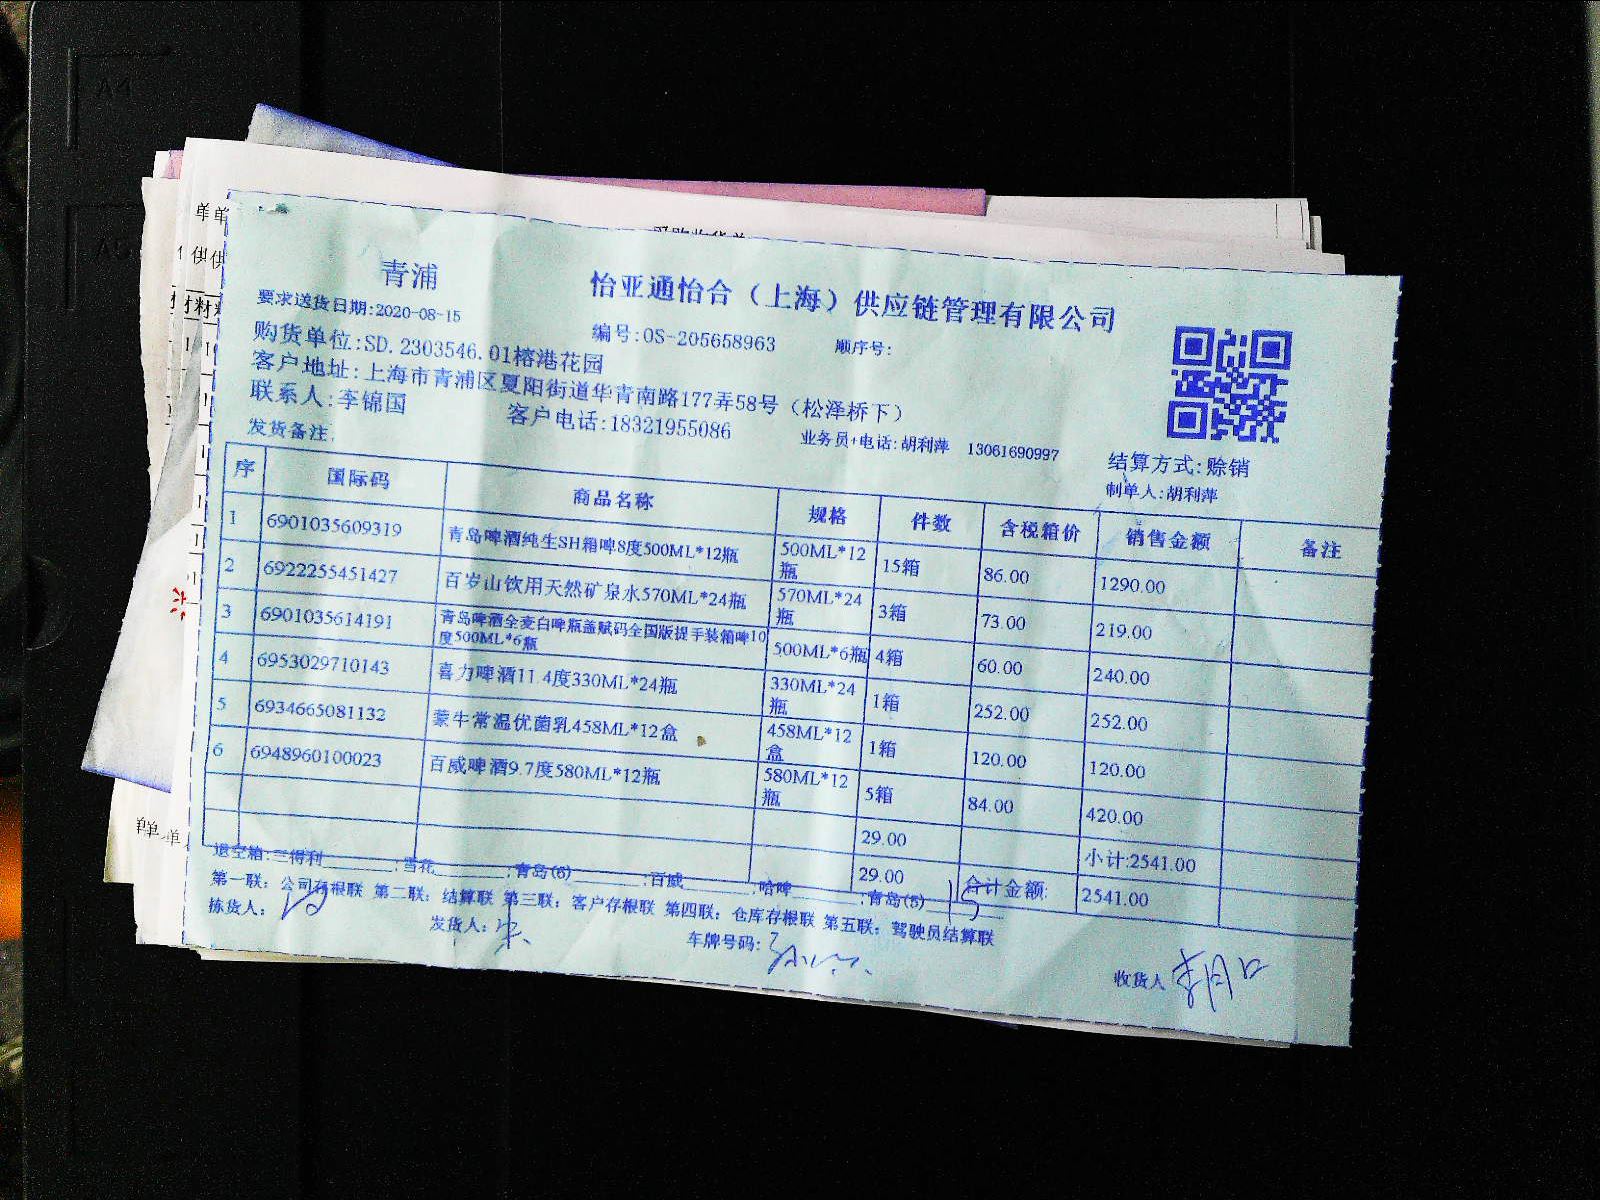 A4
A5
单单
供供
材材料
采购收货单
青浦
怡亚通怡合（上海）供应链管理有限公司
要求送货日期:2020-08-15
编号:OS-205658963
顺序号:
购货单位:SD.2303546.01榕港花园
客户地址:上海市青浦区夏阳街道华青南路177弄58号（松泽桥下）
联系人:李锦国
客户电话:18321955086
业务员+电话:胡利萍 13061690997
发货备注:
结算方式:赊销
制单人:胡利萍
序 国际码 商品名称 规格 件数 含税箱价 销售金额 备注
1 6901035609319 青岛啤酒纯生SH箱啤8度500ML*12瓶 500ML*12瓶 15箱 86.00 1290.00
2 6922255451427 百岁山饮用天然矿泉水570ML*24瓶 570ML*24瓶 3箱 73.00 219.00
3 6901035614191 青岛啤酒全麦白啤瓶盖赋码全国版提手装箱啤10度500ML*6瓶 500ML*6瓶 4箱 60.00 240.00
4 6953029710143 喜力啤酒11.4度330ML*24瓶 330ML*24瓶 1箱 252.00 252.00
5 6934665081132 蒙牛常温优菌乳458ML*12盒 458ML*12盒 1箱 120.00 120.00
6 6948960100023 百威啤酒9.7度580ML*12瓶 580ML*12瓶 5箱 84.00 420.00
29.00 小计:2541.00
29.00 合计金额: 2541.00
退空箱:三得利______;雪花______;青岛(6)______;百威______;哈啤______;青岛(5) 15
第一联：公司存根联 第二联：结算联 第三联：客户存根联 第四联：仓库存根联 第五联：驾驶员结算联
拣货人:
发货人: 朱
车牌号码:
收货人
单单 单